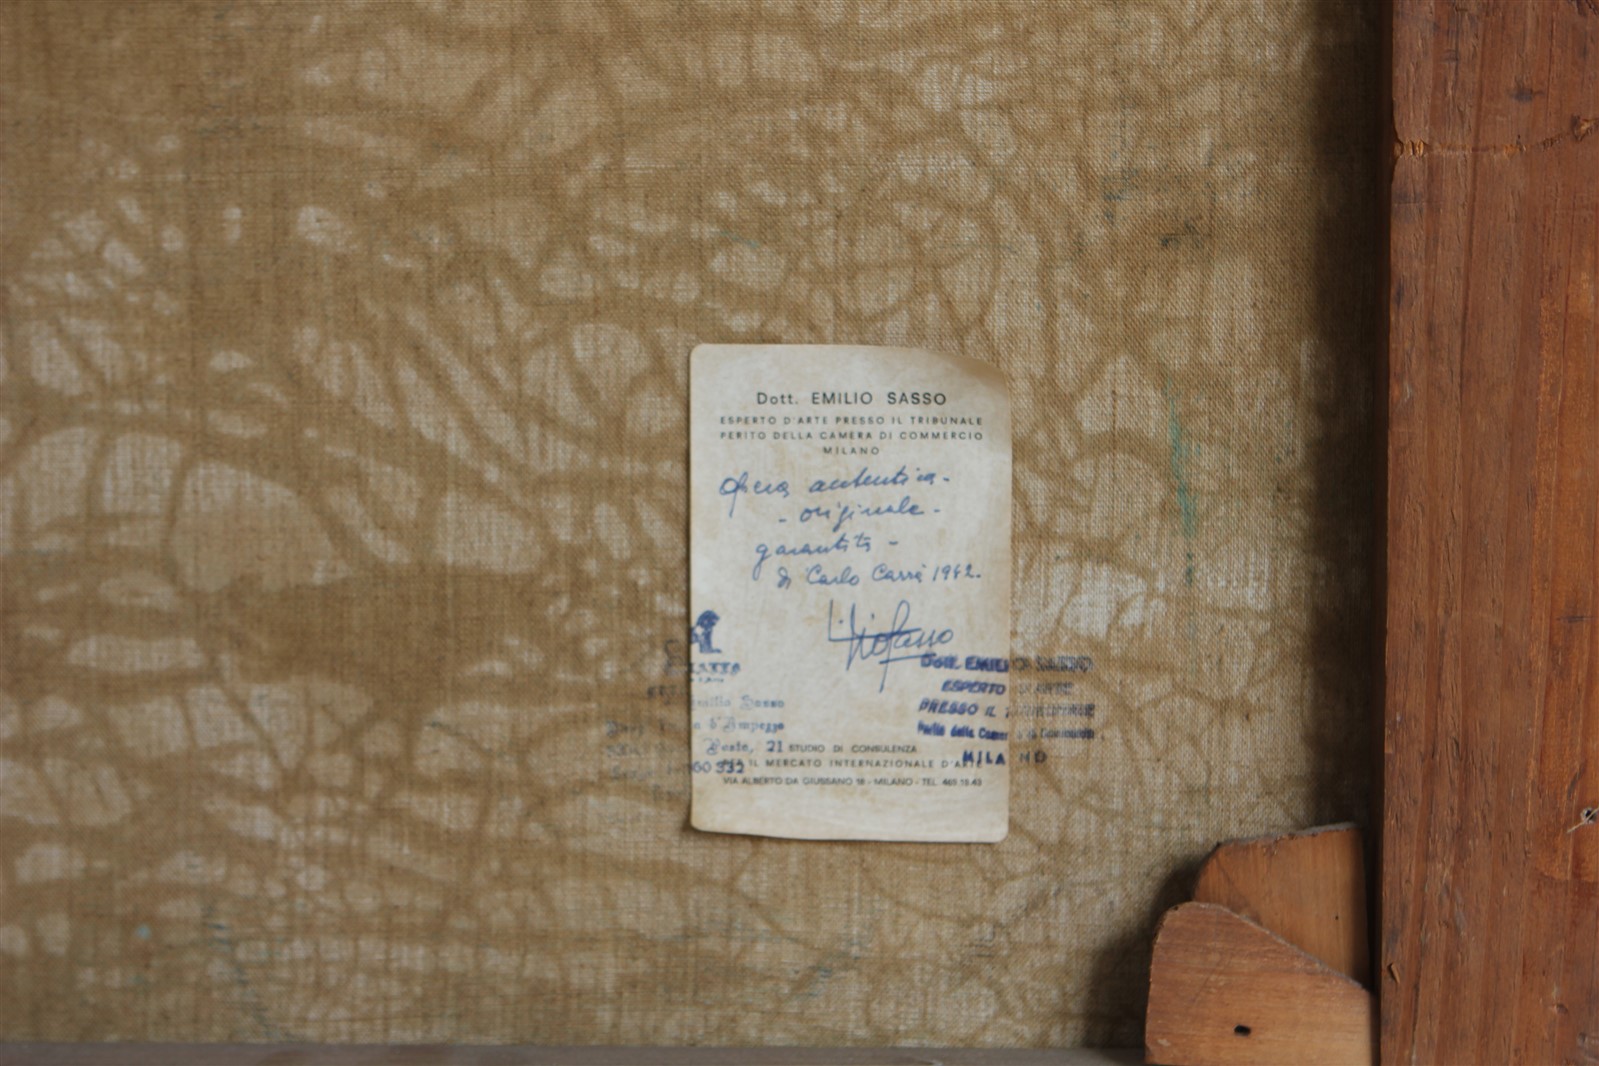 Dott. EMILIO SASSO
ESPERTO D'ARTE PRESSO IL TRIBUNALE
PERITO DELLA CAMERA DI COMMERCIO
MILANO
Opera autentica -
- originale -
garantita -
di Carlo Carrà 1942.
Dott. EMILIO SASSO
ESPERTO D'ARTE
PRESSO IL TRIBUNALE
Perito della Camera di Commercio
MILANO
Emilio Sasso
d'Ampezzo
Poste, 21
60332
STUDIO DI CONSULENZA
PER IL MERCATO INTERNAZIONALE D'ARTE
VIA ALBERTO DA GIUSSANO 18 - MILANO - TEL. 469.15.43